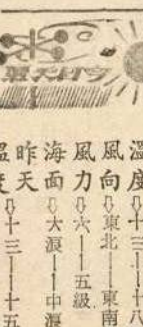 今日天氣
溫度⇩十三——十八
風向⇩東北——東南
風力⇩六——五級
海面⇩大浪——中浪
昨天
溫度⇩十三——十五